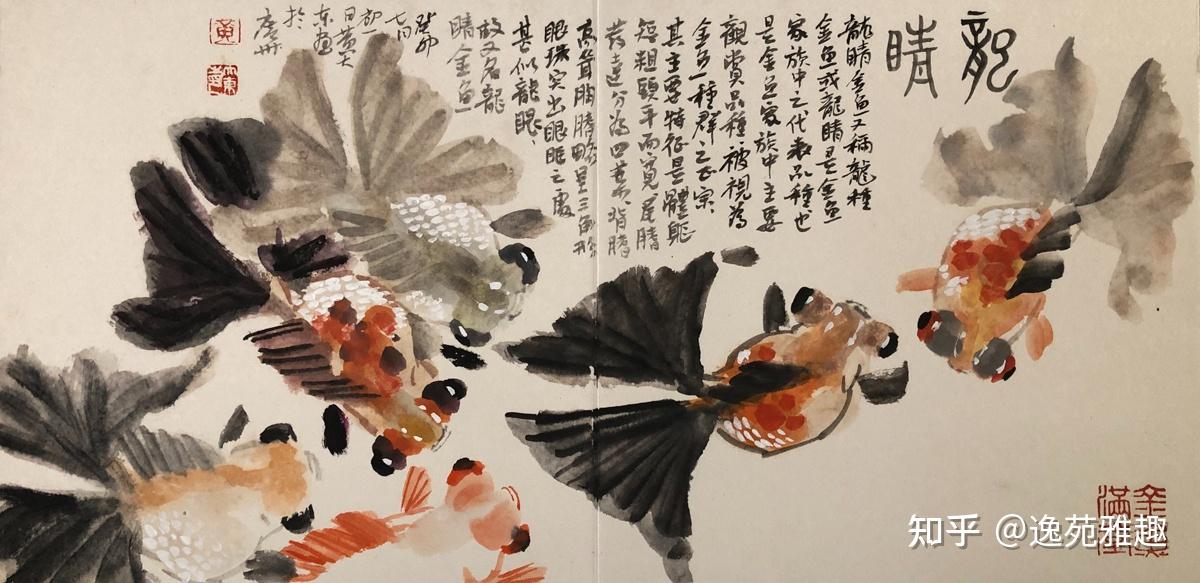 龍睛
龍睛金魚又稱龍種
金魚或龍睛是金魚
家族中之代表品種也
是金魚家族中主要
觀賞品種被視為
金魚種群之正宗
其主要特征是體軀
短粗頭平而寬尾鰭
發達分為四葉背鰭
高聳胸鰭略呈三角形
眼球突出眼眶之處
甚似龍眼
故又名龍
睛金魚
癸卯
七月
初一
日黃大
東畫
於
廣州
黃
知乎 @逸苑雅趣